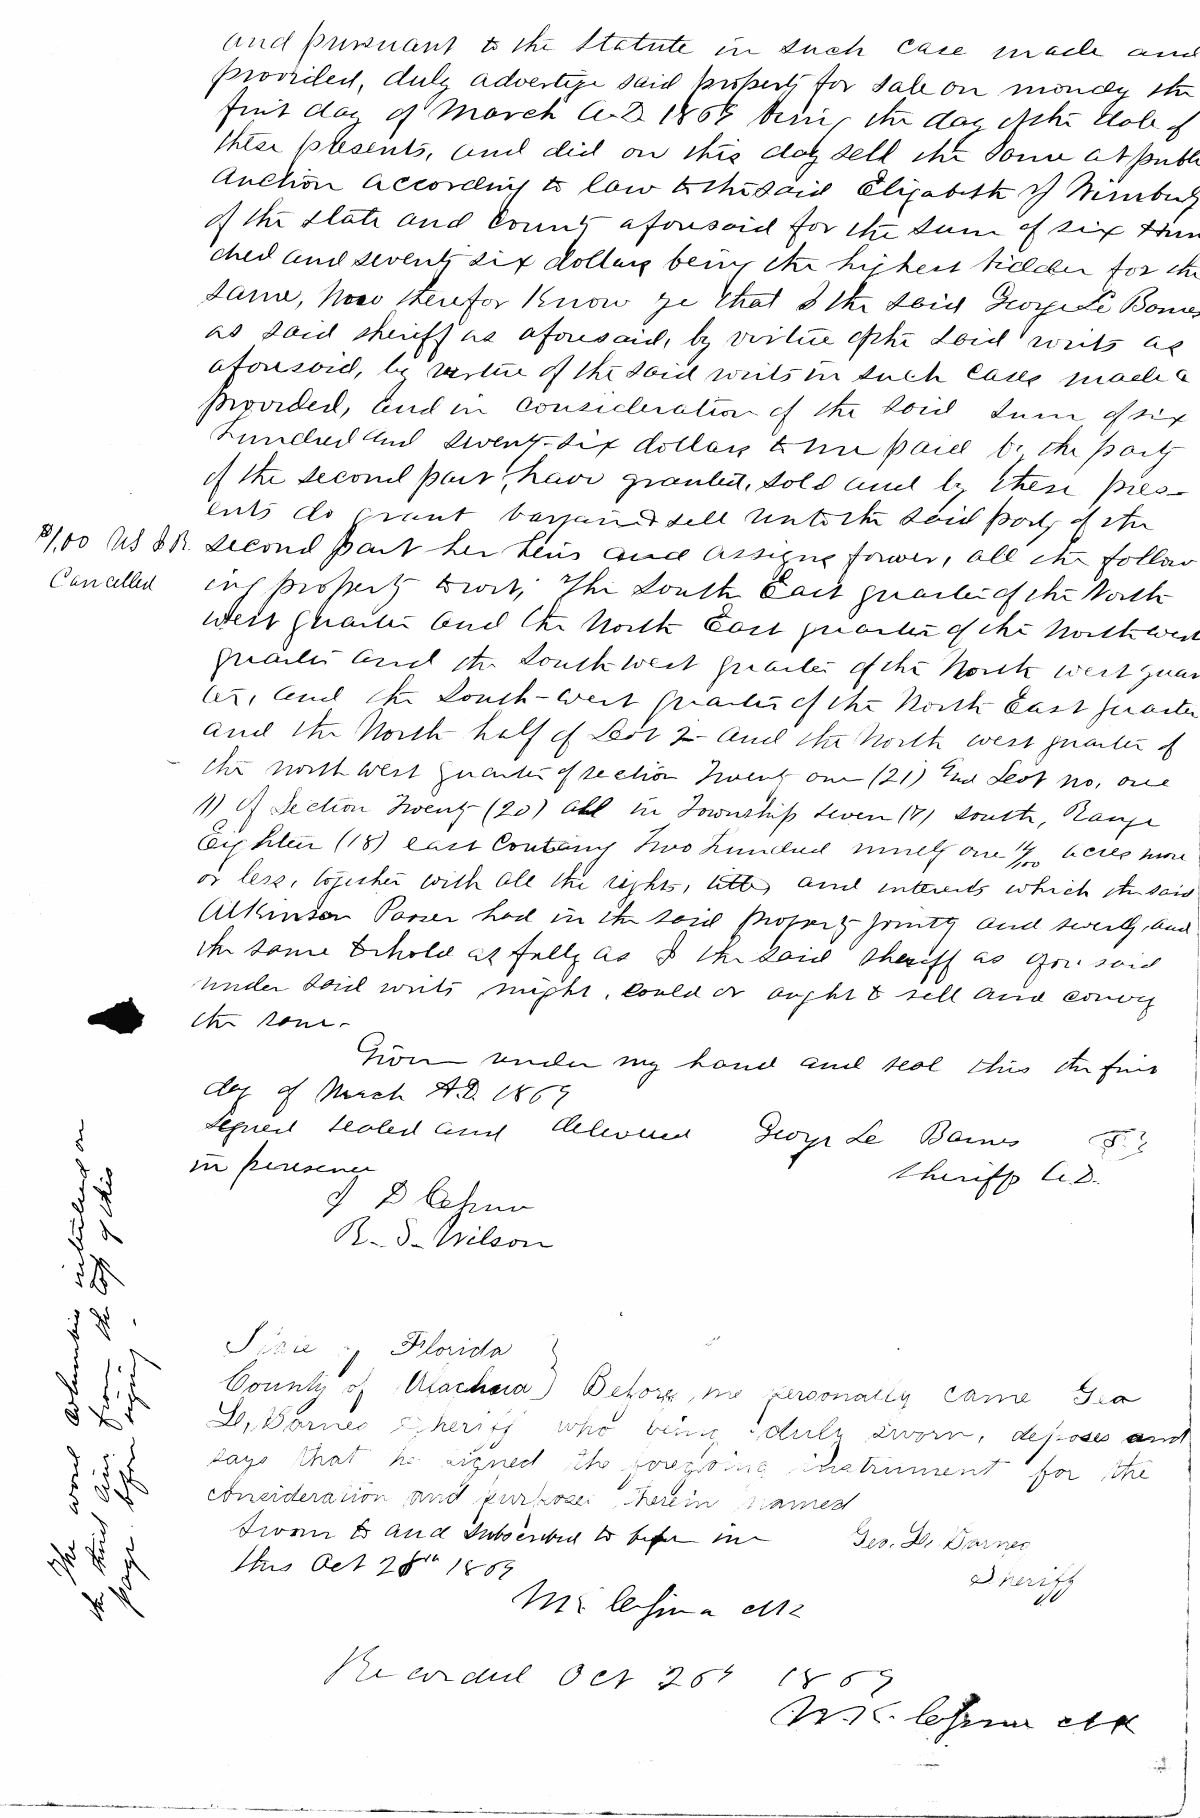 and pursuant to the Statute in such case made and
provided, duly advertize said property for sale on monday the
first day of March A.D. 1869 being the day of the date of
these presents, and did on this day sell the same at publi
Auction according to law to the said Elizabeth
of the state and County aforesaid for the sum of six Hun
dred and seventy six dollars being the highest bidder for the
same, Now therefor Know ye that I the said George Le Barnes
as said sheriff as aforesaid, by virtue of the said writs as
aforesaid, by virtue of the said writs in such cases made &
provided, and in consideration of the said sum of six
Hundred and seventy-six dollars to me paid by the party
of the second part, have granted, sold and by these pres-
ents do grant bargain & sell unto the said party of the
$1.00 US I R. second part her heirs and assigns forever, all the follow
Cancelled ing property to wit; The South East quarter of the North
west quarter and the North East quarter of the North west
quarter and the South west quarter of the North west quar
ter, and the South-west quarter of the North East quarter
and the North half of Lot 2 and the North west quarter of
the north west quarter of section Twenty one (21) and Lot no. one
(1) of Section Twenty (20) all in Township seven (7) south, Range
Eighteen (18) east Containing Two Hundred ninety one acres more
or less, together with all the rights, titles and interests which the said
Atkinson had in the said property jointly and severly, and
the same to hold as fully as I the said sheriff as afore said
under said writs might, could or aught to sell and convey
the same.
Given under my hand and seal this the first
day of March A.D. 1869
Signed sealed and delivered George Le Barnes
in presence Sheriff A.C.
R. S. Wilson
The word Columbia interlined on
the third line from the top of this
page before signing.
State of Florida
County of Alachua } Before me personally came Geo
L. Barnes Sheriff who being duly sworn, deposes and
says that he signed the foregoing instrument for the
consideration and purposes therein named
Sworn to and Subscribed to before me Geo. L. Barnes
this Oct 26th 1869 Sheriff
Clk
Recorded Oct 26th 1869
W. K. Cessna Clk